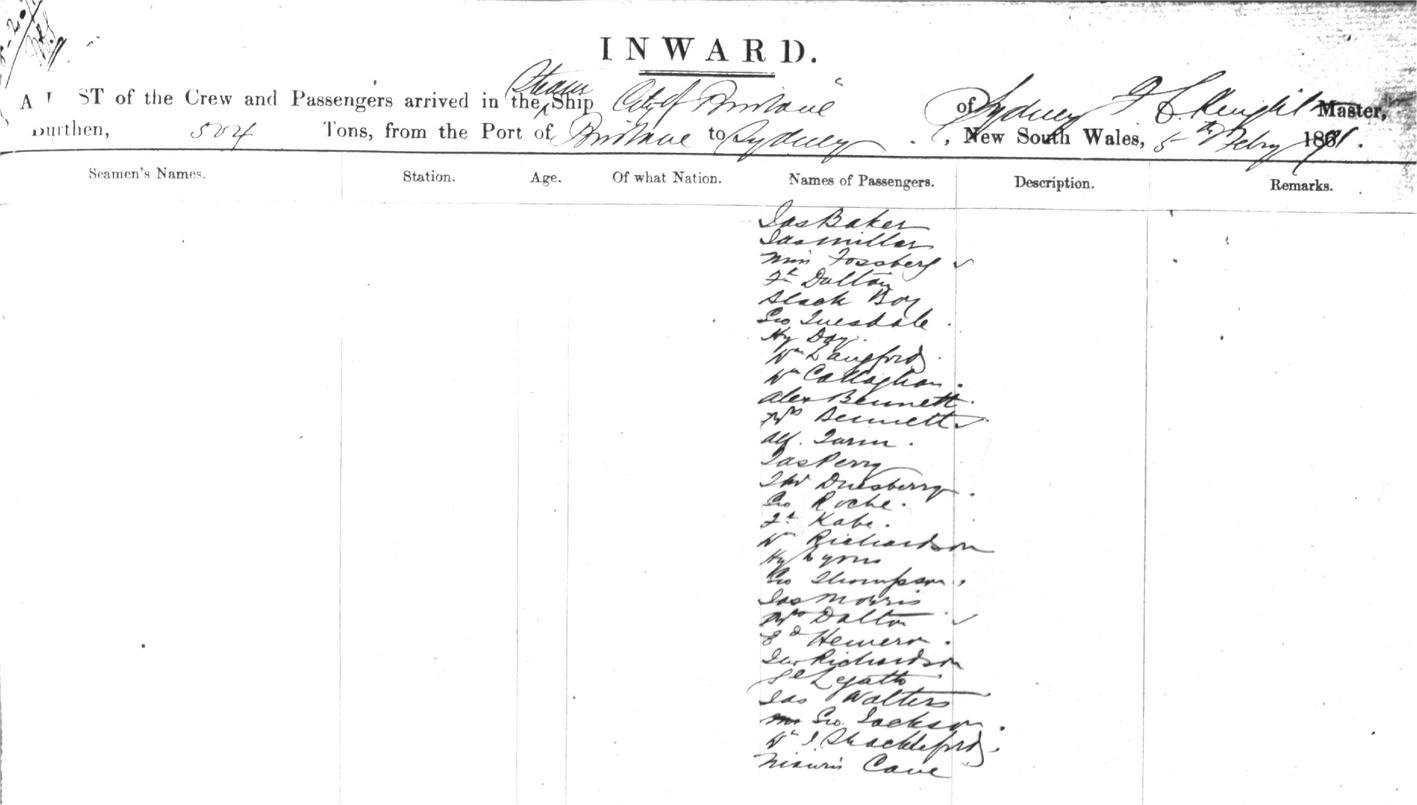 INWARD.
A LIST of the Crew and Passengers arrived in the Steam Ship "City of Brisbane" of Sydney Master,
Burthen, 504 Tons, from the Port of Brisbane to Sydney, New South Wales, 5th Febry 18
Seamen's Names. Station. Age. Of what Nation. Names of Passengers. Description. Remarks.
Jas Baker
Jas Miller
Miss Fossberg
Dalton
Black Boy
Geo Tuesdale
Hy Day
Wm Langford
Wm Callaghan
Alex Bennett
Mrs Bennett
Alf.
Jas Perry
Duesberry
Geo Roche
Kabe
Wm Richardson
Hy Lyons
Geo Thompson
Jas Morris
Mrs Dalton
Ed
Richardson
Jas Walters
Geo Jackson
Wm J. Shackleford
Cave